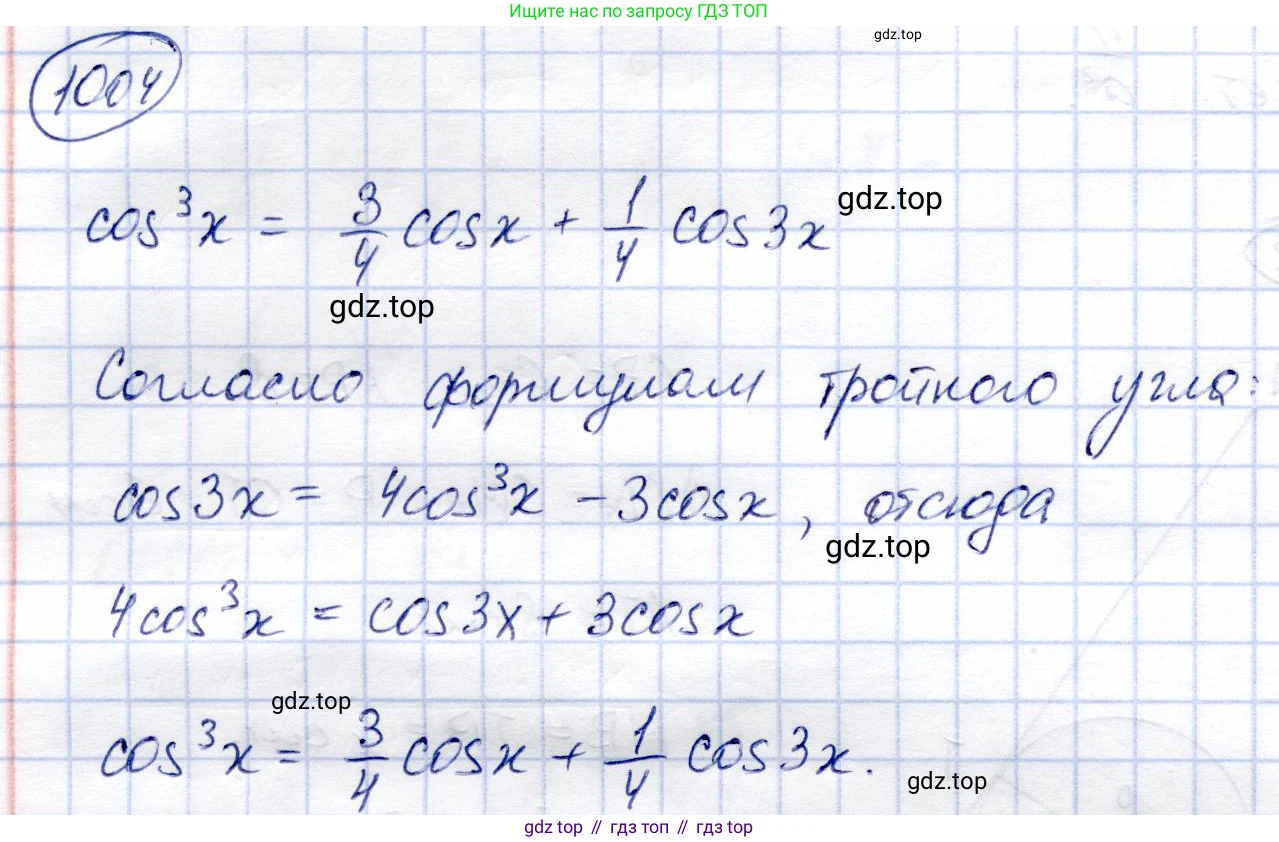 Ищите нас по запросу ГДЗ ТОП
gdz.top
1004
cos³x = 3/4 cosx + 1/4 cos3x gdz.top
gdz.top
Согласно формулам тройного угла:
cos3x = 4cos³x - 3cosx, отсюда
gdz.top
4cos³x = cos3x + 3cosx
gdz.top
cos³x = 3/4 cosx + 1/4 cos3x.
gdz.top
gdz top // гдз топ // гдз top